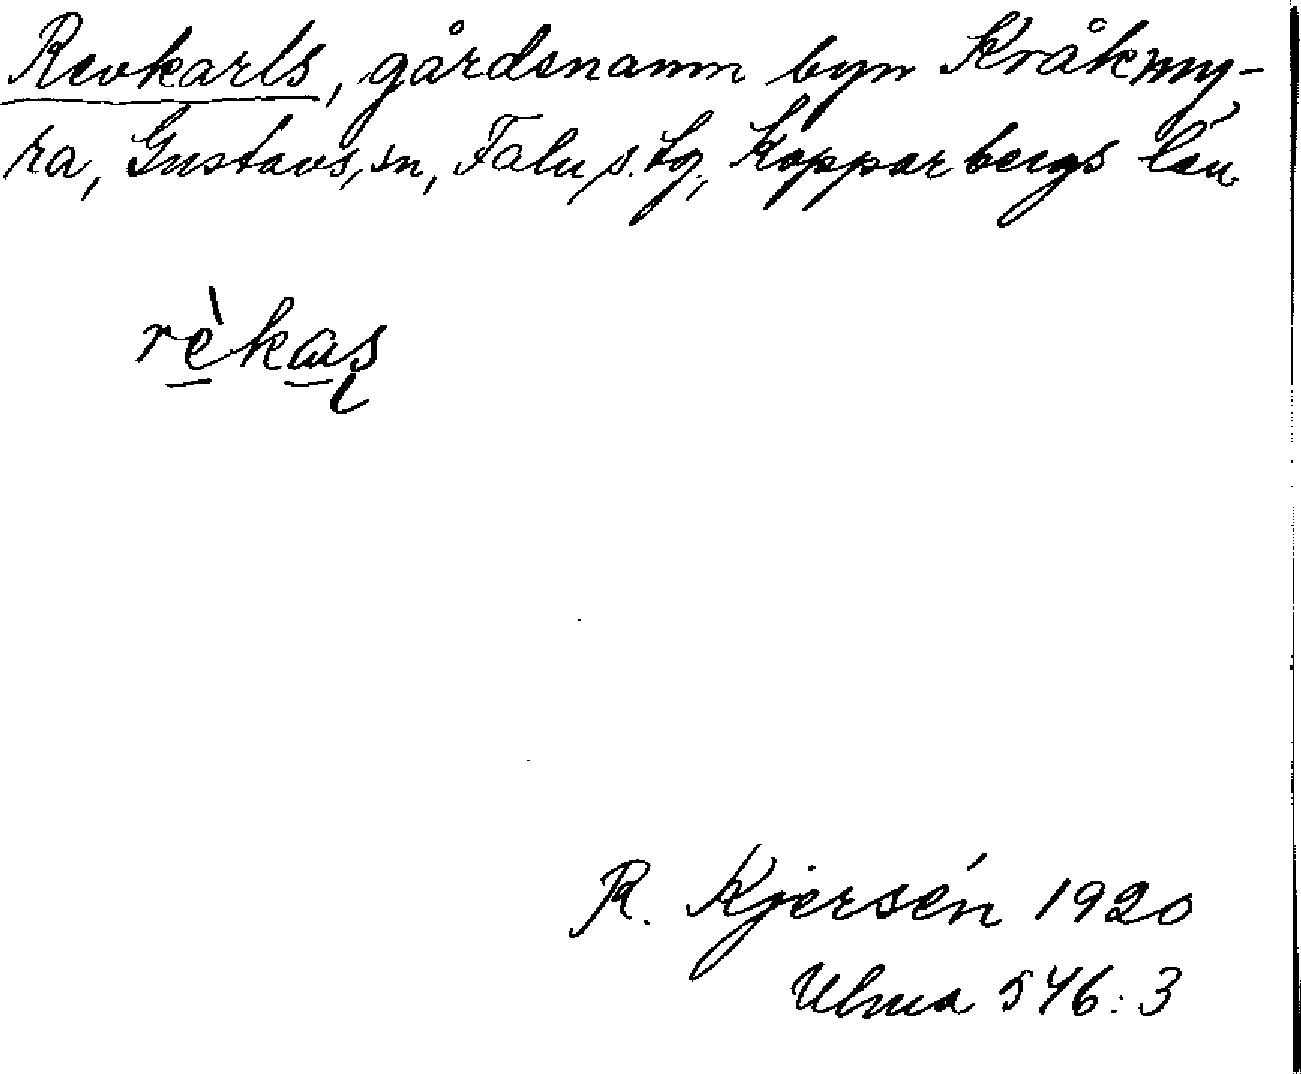 Revkarls, gårdsnamn byn Kråkmy-
ra, Gustavs, sn, Falu, s. tg., Kopparbergs län
rèkas
R. Kjersén 1920
Ulma 546:3